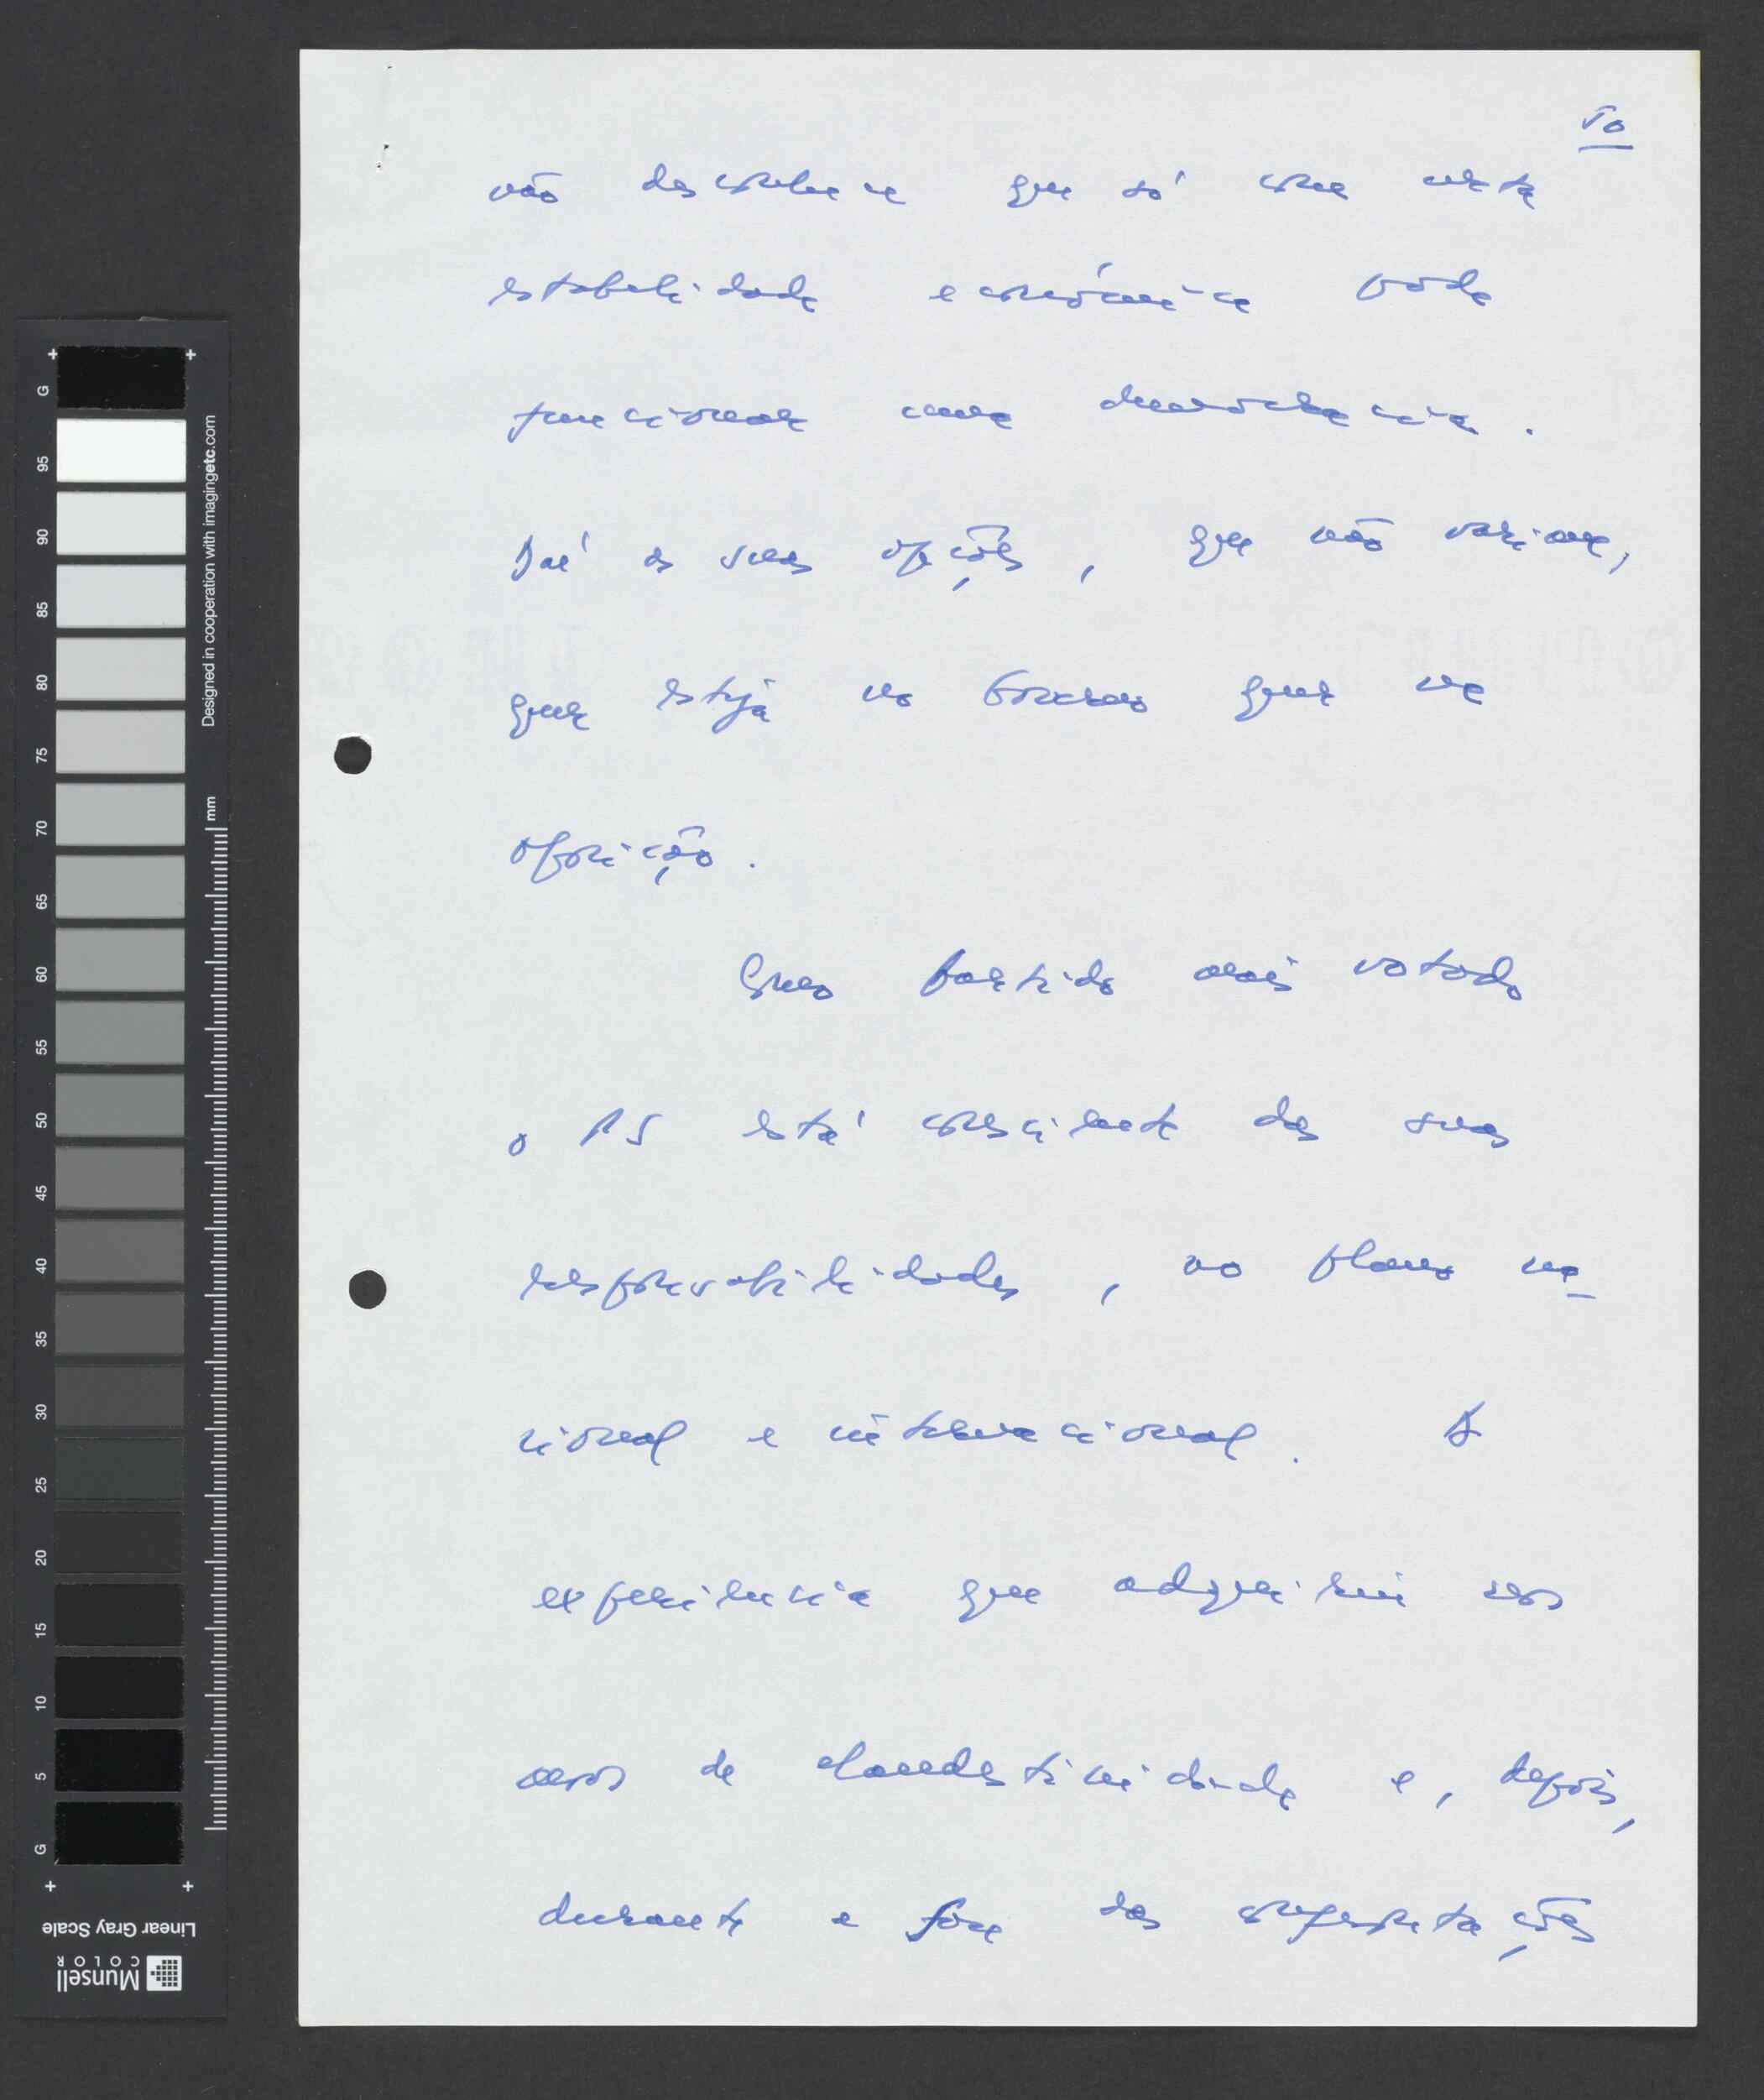 50
não desconhece que só com certa
estabilidade económica pode
funcionar uma democracia.
Daí as suas opções, que não variam,
quer esteja no Governo quer na
oposição.
Como partido mais votado
o PS está consciente das suas
responsabilidades, no plano na-
cional e internacional. A
experiência que adquiriu nos
anos de clandestinidade e, depois,
durante a fase das
G 95 90 85 80 75 70 65 60 55 50 45 40 35 30 25 20 15 10 5 G
Designed in cooperation with imagingetc.com
mm
Linear Gray Scale
Munsell
COLOR